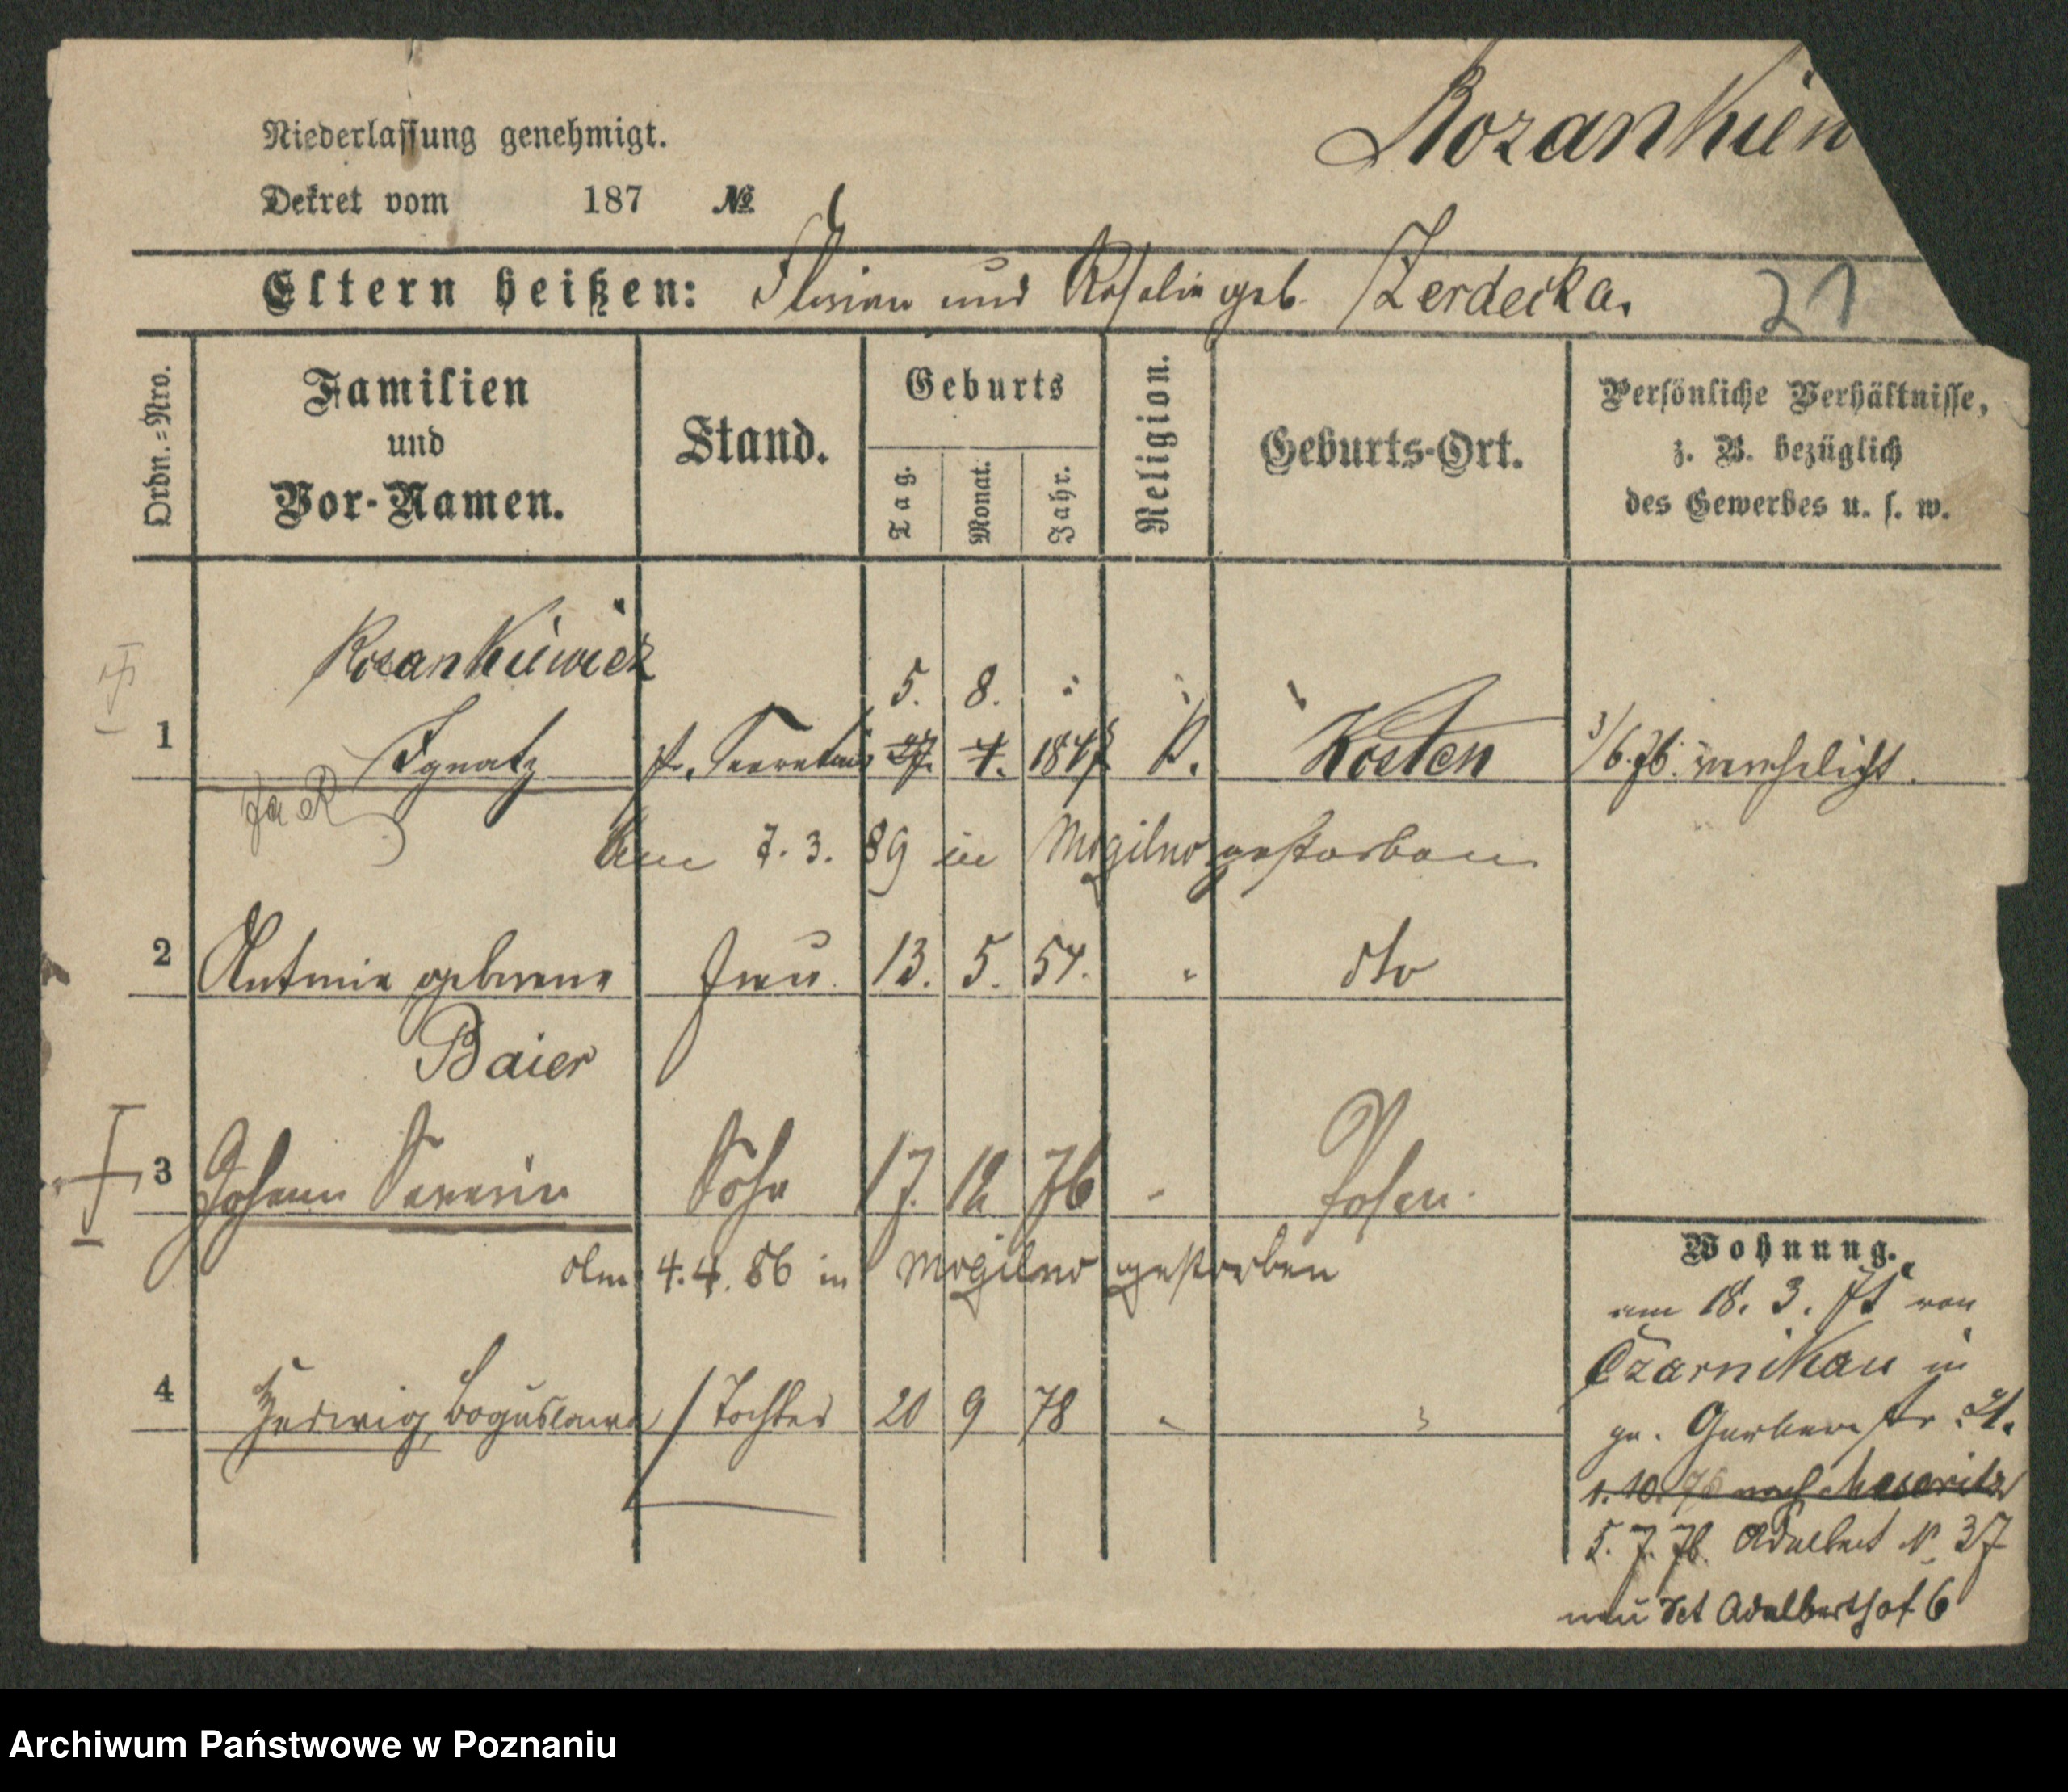 Rozankiew
Niederlassung genehmigt.
Dekret vom 187 №
Eltern heißen: Florian und Rosalie geb. Zerdecka.
21
Ordn.=Nro.
Familien und Vor-Namen.
Stand.
Geburts
Tag. Monat. Jahr.
Religion.
Geburts-Ort.
Persönliche Verhältnisse,
z. B. bezüglich
des Gewerbes u. s. w.
Rozankiewicz
5. 8.
1 Ignatz Secretair 27. 7. 1847 K. Kosten 3/6.76. verehelicht.
Am 7. 3. 89 in Mogilno gestorben
2 Antonie geborene Frau 13. 5. 54. " dto
Baier
3 Johann Severin Sohn 17. 12 76 " Posen.
Am 4. 4. 86 in Mogilno gestorben
4 Hedwig, Boguslawa / Tochter 20 9 78 " "
Wohnung.
am 18. 3. von
Czarnikau in
gr. Gerberstr 21.
1. 10. 76 nach Meseritz
5. 7. 76. Adalbert N. 37
Adalberthof 6
Archiwum Państwowe w Poznaniu